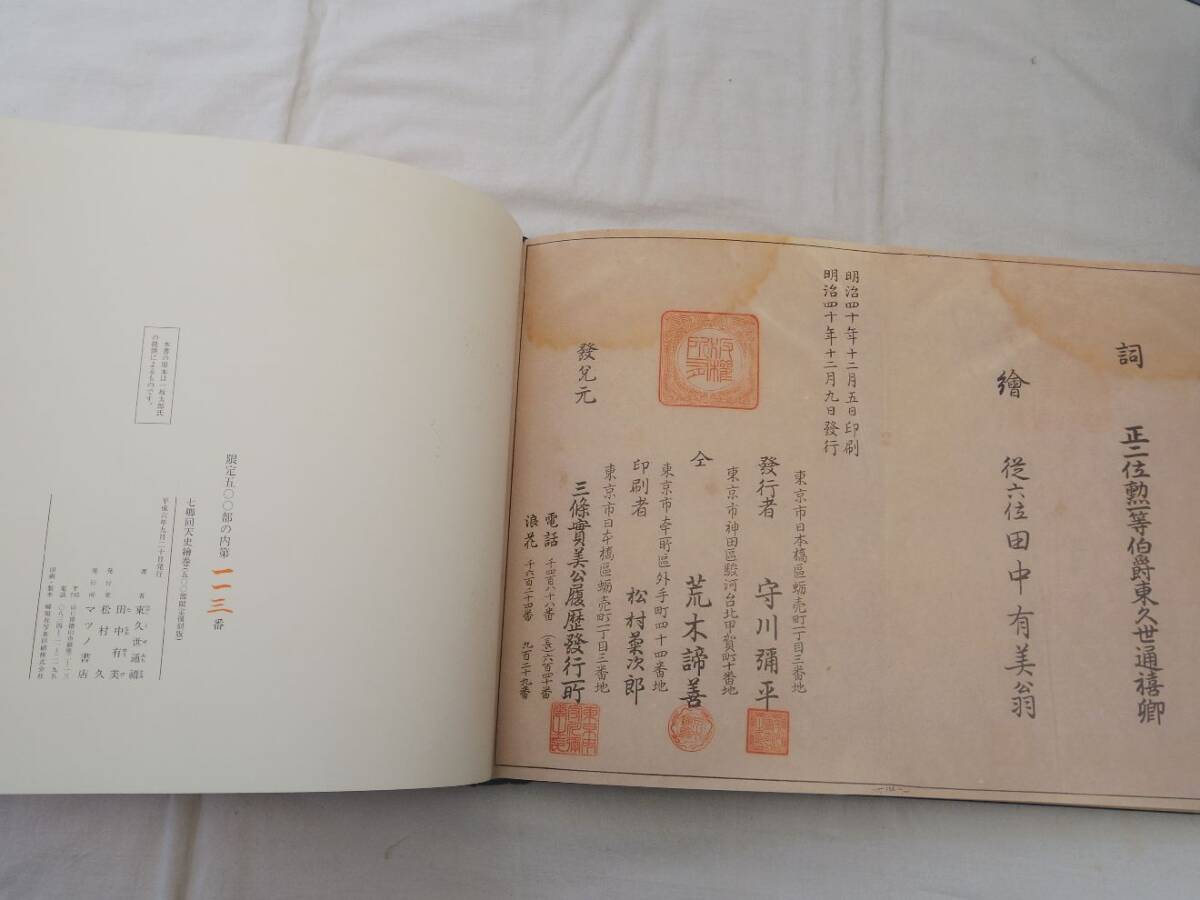 詞　正二位勲一等伯爵東久世通禧卿
繪　従六位田中有美翁
明治四十年十二月五日印刷
明治四十年十二月九日發行
東京市日本橋區蛎売町一丁目三番地
發行者　守川彌平
東京市神田區駿河台北甲賀町十番地
仝　荒木諦善
東京市本所區外手町四十四番地
印刷者　松村菊次郎
東京市日本橋區蛎売町一丁目三番地
發兌元　三條實美公履歴發行所
電話　千四百八十八番　(長)六百四十番
浪花　千六百二十四番　九百二十九番
版權所有
限定五〇〇部の内第一一三番
七卿回天史繪巻(五〇〇部限定復刻版)
平成六年九月二十日発行
著者　東久世通禧
田中有美
発行者　松村久
発行所　マツノ書店